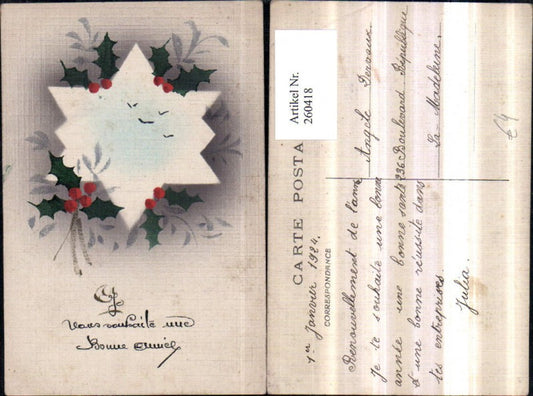 Je
Vous souhaite une
Bonne Année
Artikel Nr.
260418
CARTE POSTA
CORRESPONDANCE
1er Janvier 1924.
Renouvellement de l'ann
Je te souhaite une bonne
année une bonne santé
et une bonne réussite dans
tes entreprises.
Julia.
Angèle Derveaux.
236 Boulevard République
La Madeleine.
£4